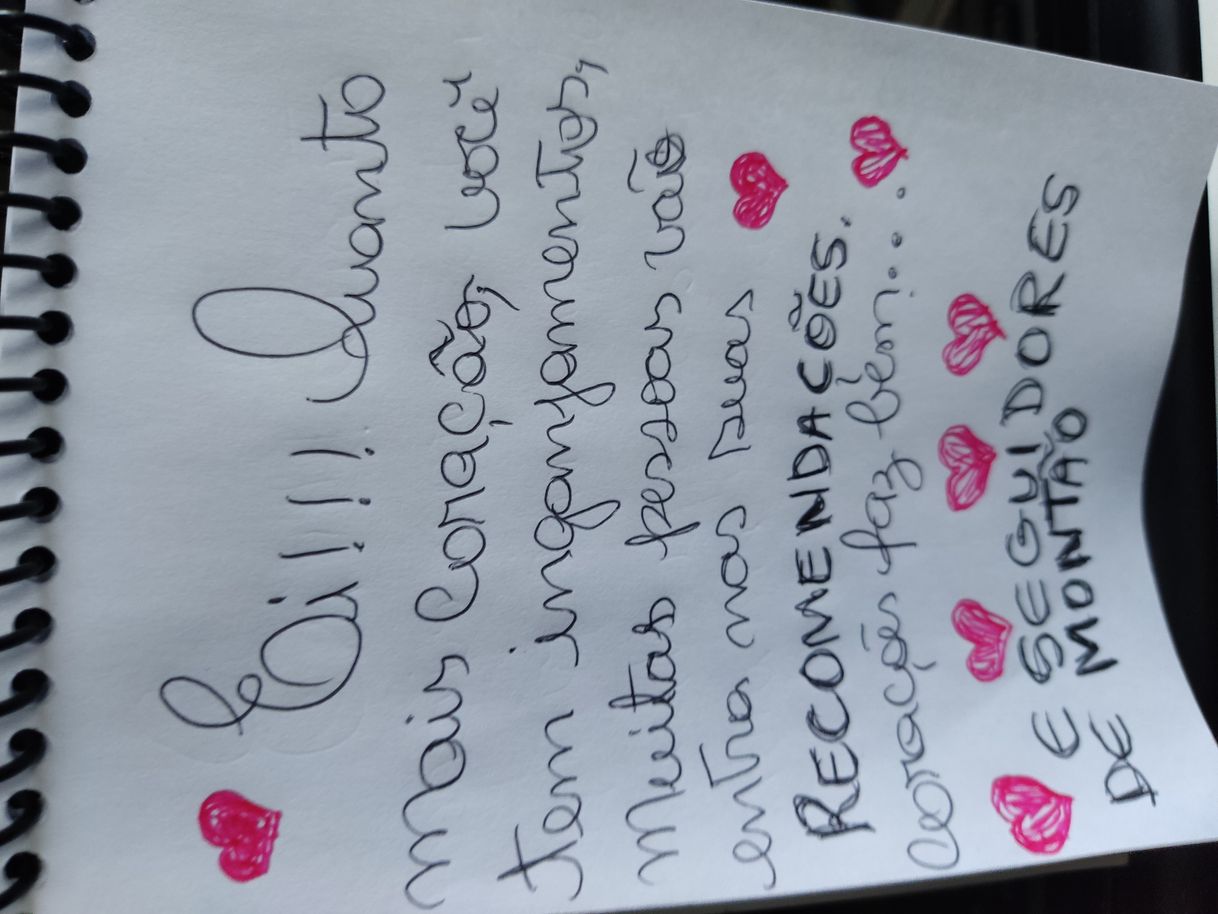 Ei!!! Quanto
mais coração, você
tem inganjamentos,
muitas pessoas vão
entra nas suas
RECOMENDAÇÕES.
corações faz bem....
E SEGUIDORES
DE MONTÃO